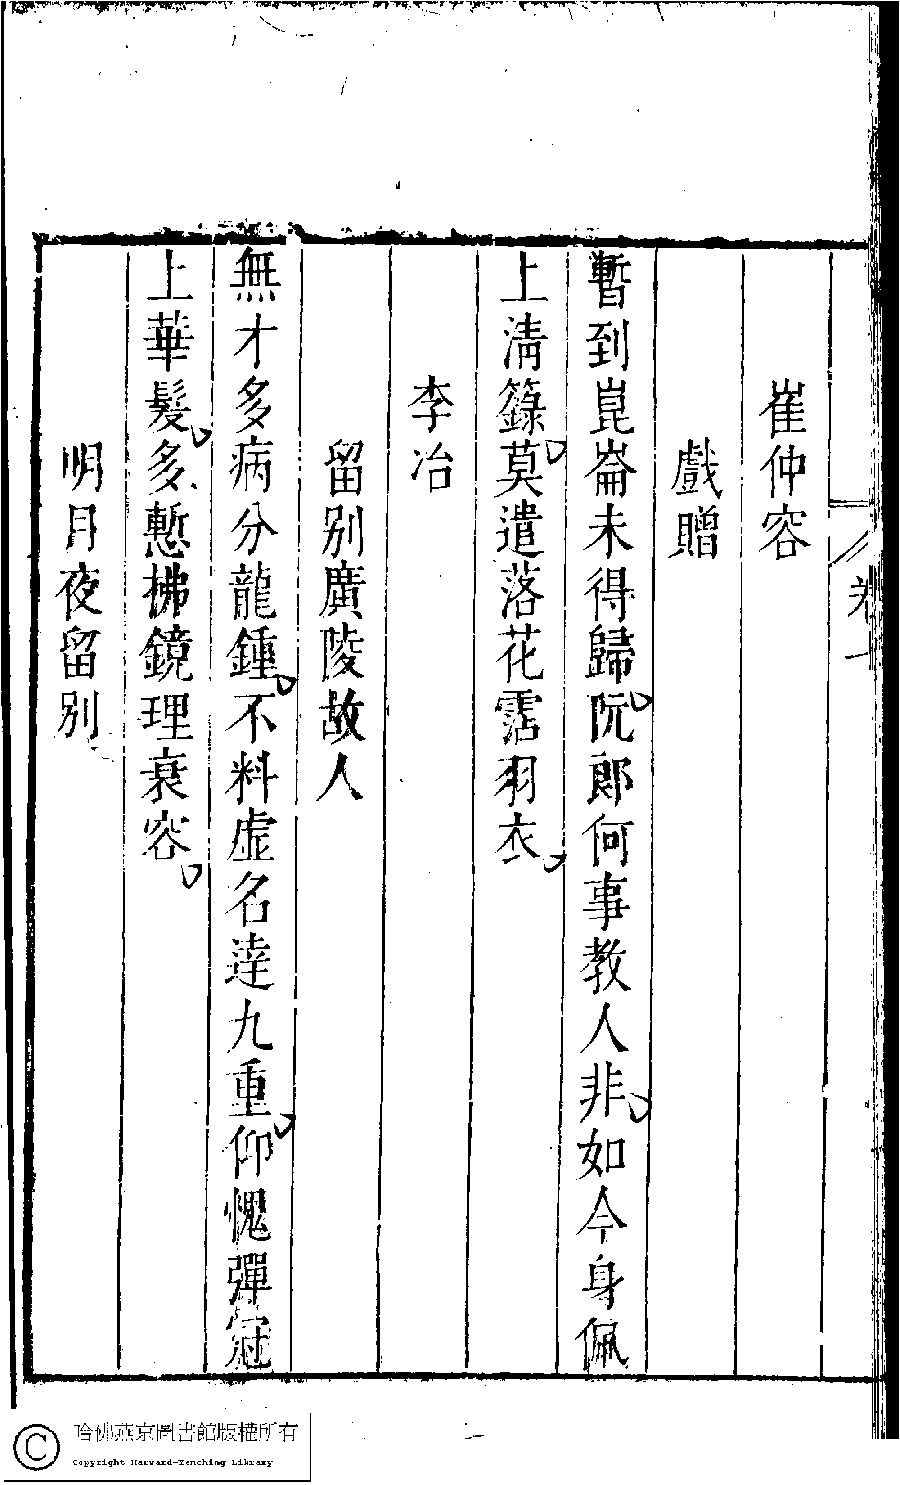 卷一
崔仲容
戲贈
暫到崑崙未得歸阮郎何事教人非如今身佩
上清籙莫遣落花霑羽衣
李冶
留別廣陵故人
無才多病分龍鍾不料虛名達九重仰愧彈冠
上華髮多慙拂鏡理衰容
明月夜留別
哈佛燕京圖書館版權所有
Copyright Harvard-Yenching Library